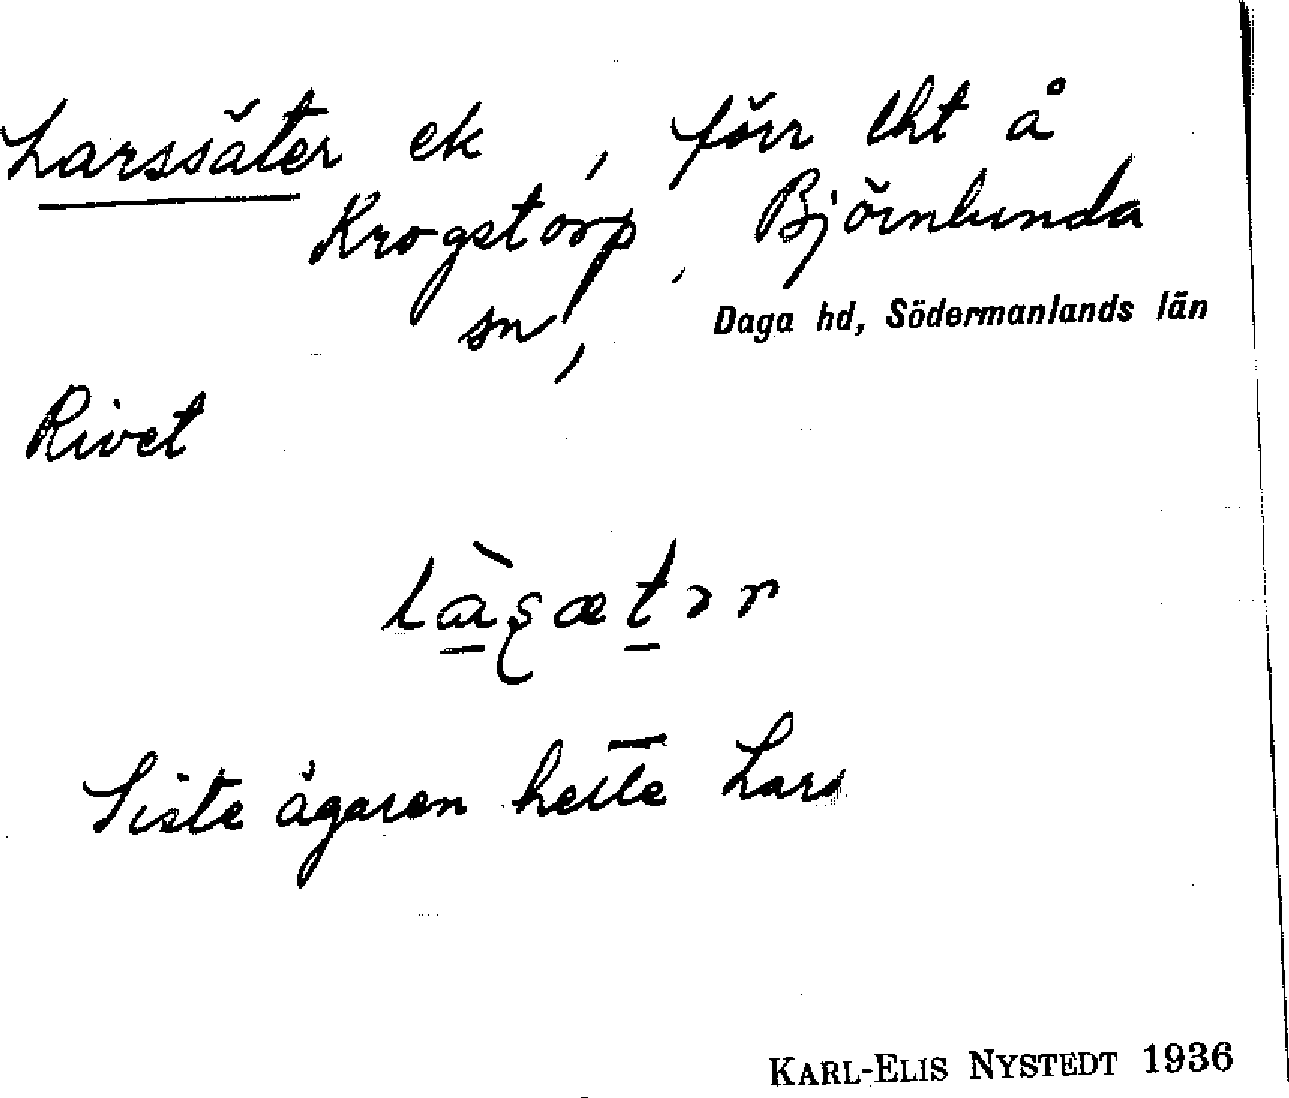 Larssäter ek, förr lht å
Krogstorp, Björnlunda
sn, Daga hd, Södermanlands län
Rivet
Siste ägaren hette Lars
KARL-ELIS NYSTEDT 1936